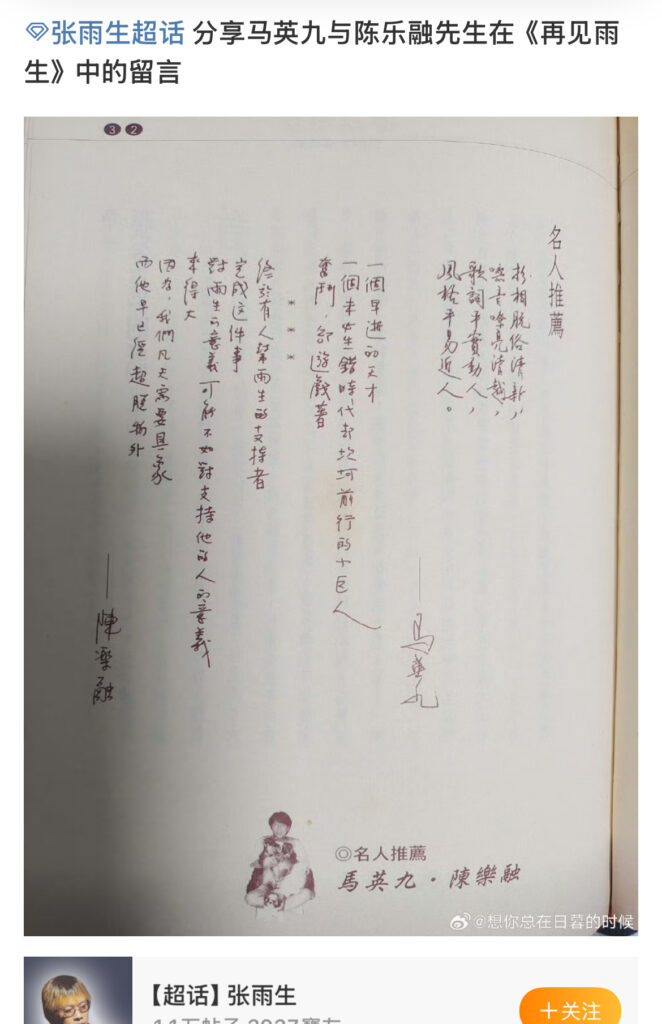 张雨生超话 分享马英九与陈乐融先生在《再见雨
生》中的留言
32
名人推薦
形相脫俗清新，
嗓音嘹亮清越，
歌詞平實動人，
風格平易近人。
——馬英九
一個早逝的天才
一個未必生錯時代却坎坷前行的小巨人
奮鬥，卻遊戲著
＊＊＊
終於有人幫雨生的支持者
完成這件事
對雨生的意義可能不如對支持他的人的意義
來得大
因為，我們凡夫需要具象
而他早已經超脫物外
——陳樂融
◎名人推薦
馬英九・陳樂融
@想你总在日暮的时候
【超话】张雨生
＋关注